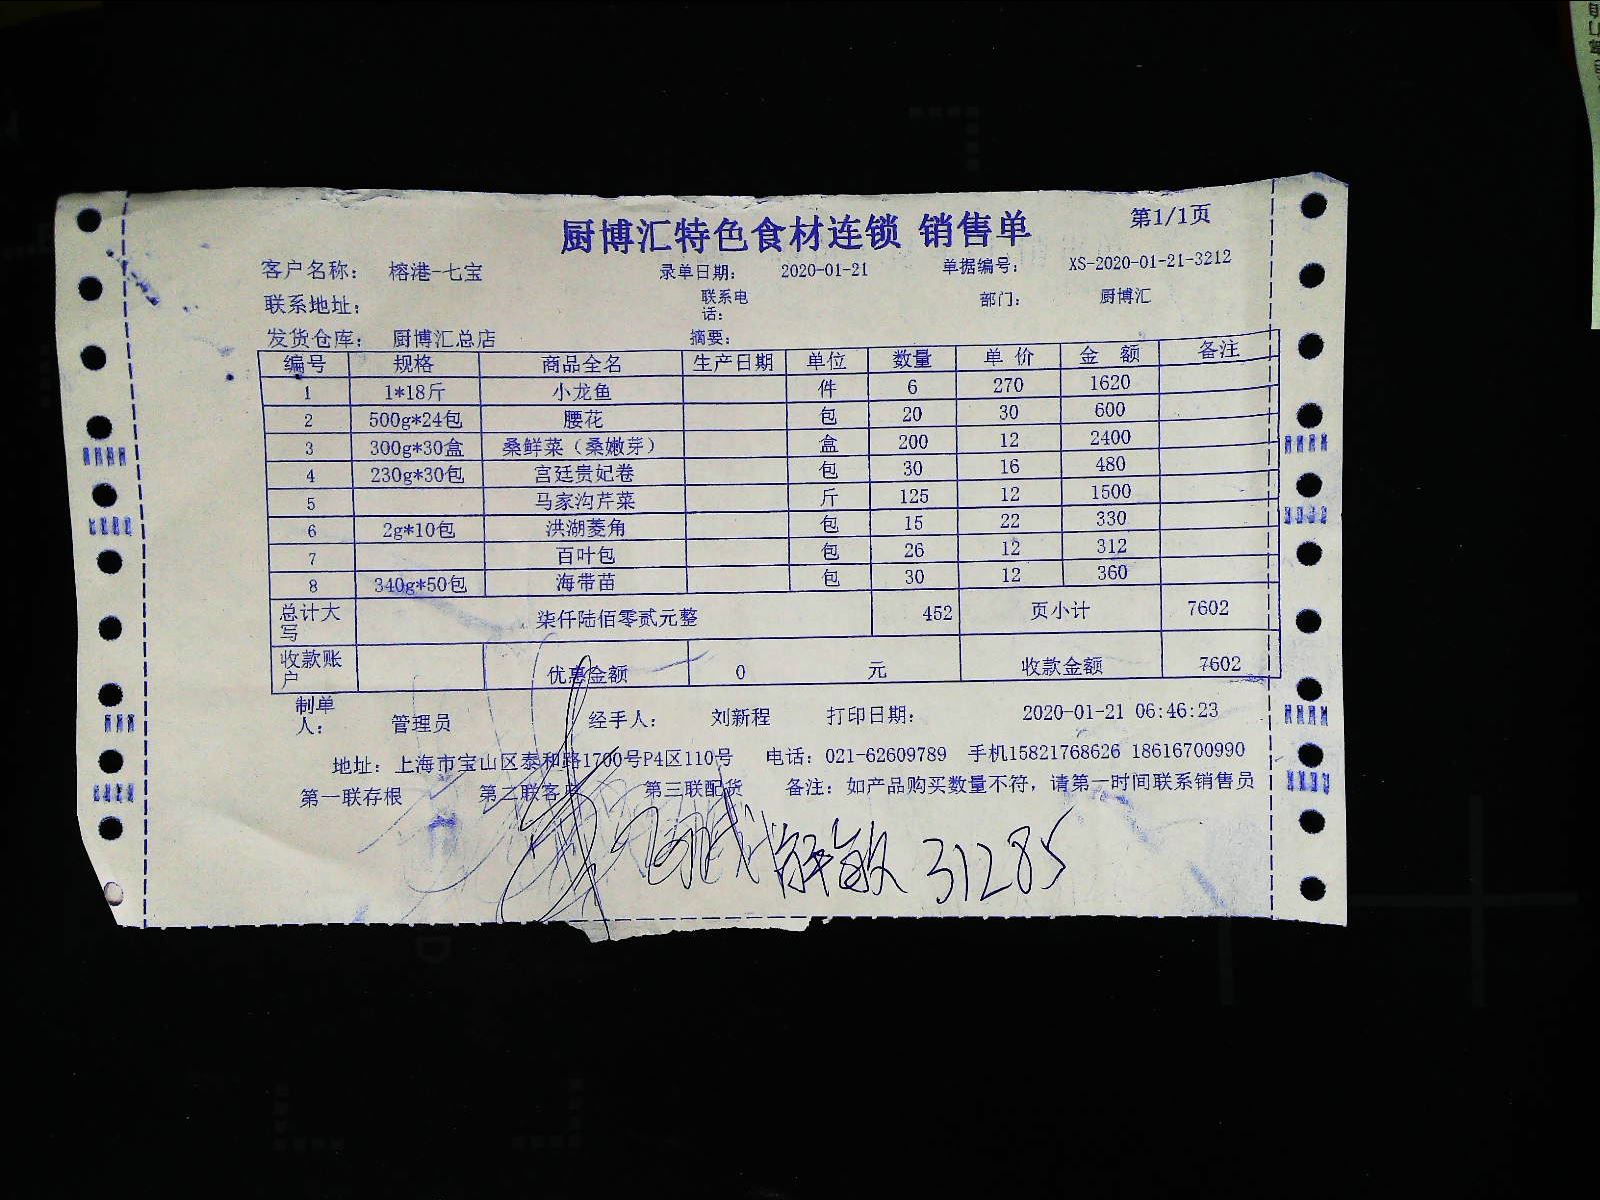 厨博汇特色食材连锁 销售单 第1/1页
客户名称： 榕港-七宝 录单日期： 2020-01-21 单据编号： XS-2020-01-21-3212
联系地址： 联系电话： 部门： 厨博汇
发货仓库： 厨博汇总店 摘要：
编号 规格 商品全名 生产日期 单位 数量 单 价 金 额 备注
1 1*18斤 小龙鱼 件 6 270 1620
2 500g*24包 腰花 包 20 30 600
3 300g*30盒 桑鲜菜（桑嫩芽） 盒 200 12 2400
4 230g*30包 宫廷贵妃卷 包 30 16 480
5 马家沟芹菜 斤 125 12 1500
6 2g*10包 洪湖菱角 包 15 22 330
7 百叶包 包 26 12 312
8 340g*50包 海带苗 包 30 12 360
总计大写 柒仟陆佰零贰元整 452 页小计 7602
收款账户 优惠金额 0 元 收款金额 7602
制单人： 管理员 经手人： 刘新程 打印日期： 2020-01-21 06:46:23
地址：上海市宝山区泰和路1700号P4区110号 电话：021-62609789 手机15821768626 18616700990
第一联存根 第二联客户 第三联配货 备注：如产品购买数量不符，请第一时间联系销售员
31285